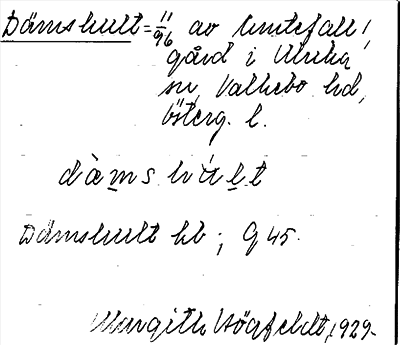 Dämshult = 11/96 av Simtefall,
gård i Ulrika
sn, Valkebo hd,
Österg. l.
dä̀mshúlt
Dämshult hb; G 45.
Margith Högfeldt, 1929.